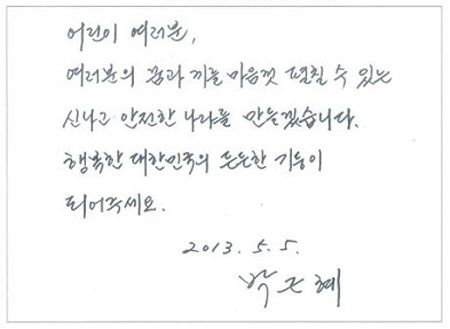 어린이 여러분,
여러분의 꿈과 끼를 마음껏 펼칠 수 있는
신나고 안전한 나라를 만들겠습니다.
행복한 대한민국의 든든한 기둥이
되어주세요.
2013. 5. 5.
박근혜